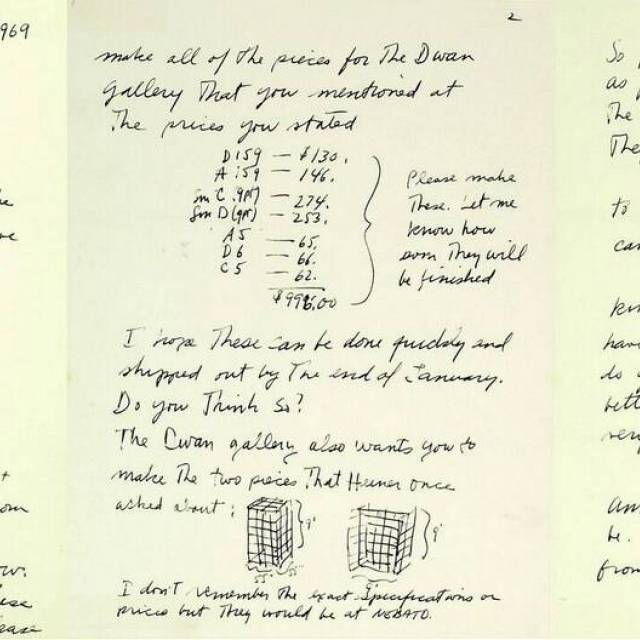 1969
2
make all of the pieces for The Dwan
gallery That you mentioned at
The prices you stated
D 159 — $130.
A 159 — 146.
Sm C (9pt) — 274.
Sm D (9pt) — 253.
A 5 — 65.
D 6 — 66.
C 5 — 62.
$996.00
Please make
These. Let me
know how
soon They will
be finished
I hope These can be done quickly and
shipped out by The end of January.
Do you Think so?
The Dwan gallery also wants you to
make The two pieces That Heiner once
asked about;
9'
9'
I don't remember the exact Specifications or
prices but They would be at NEBATO.
So
as
The
The
to
can
have
do
bett
very
am
be.
from